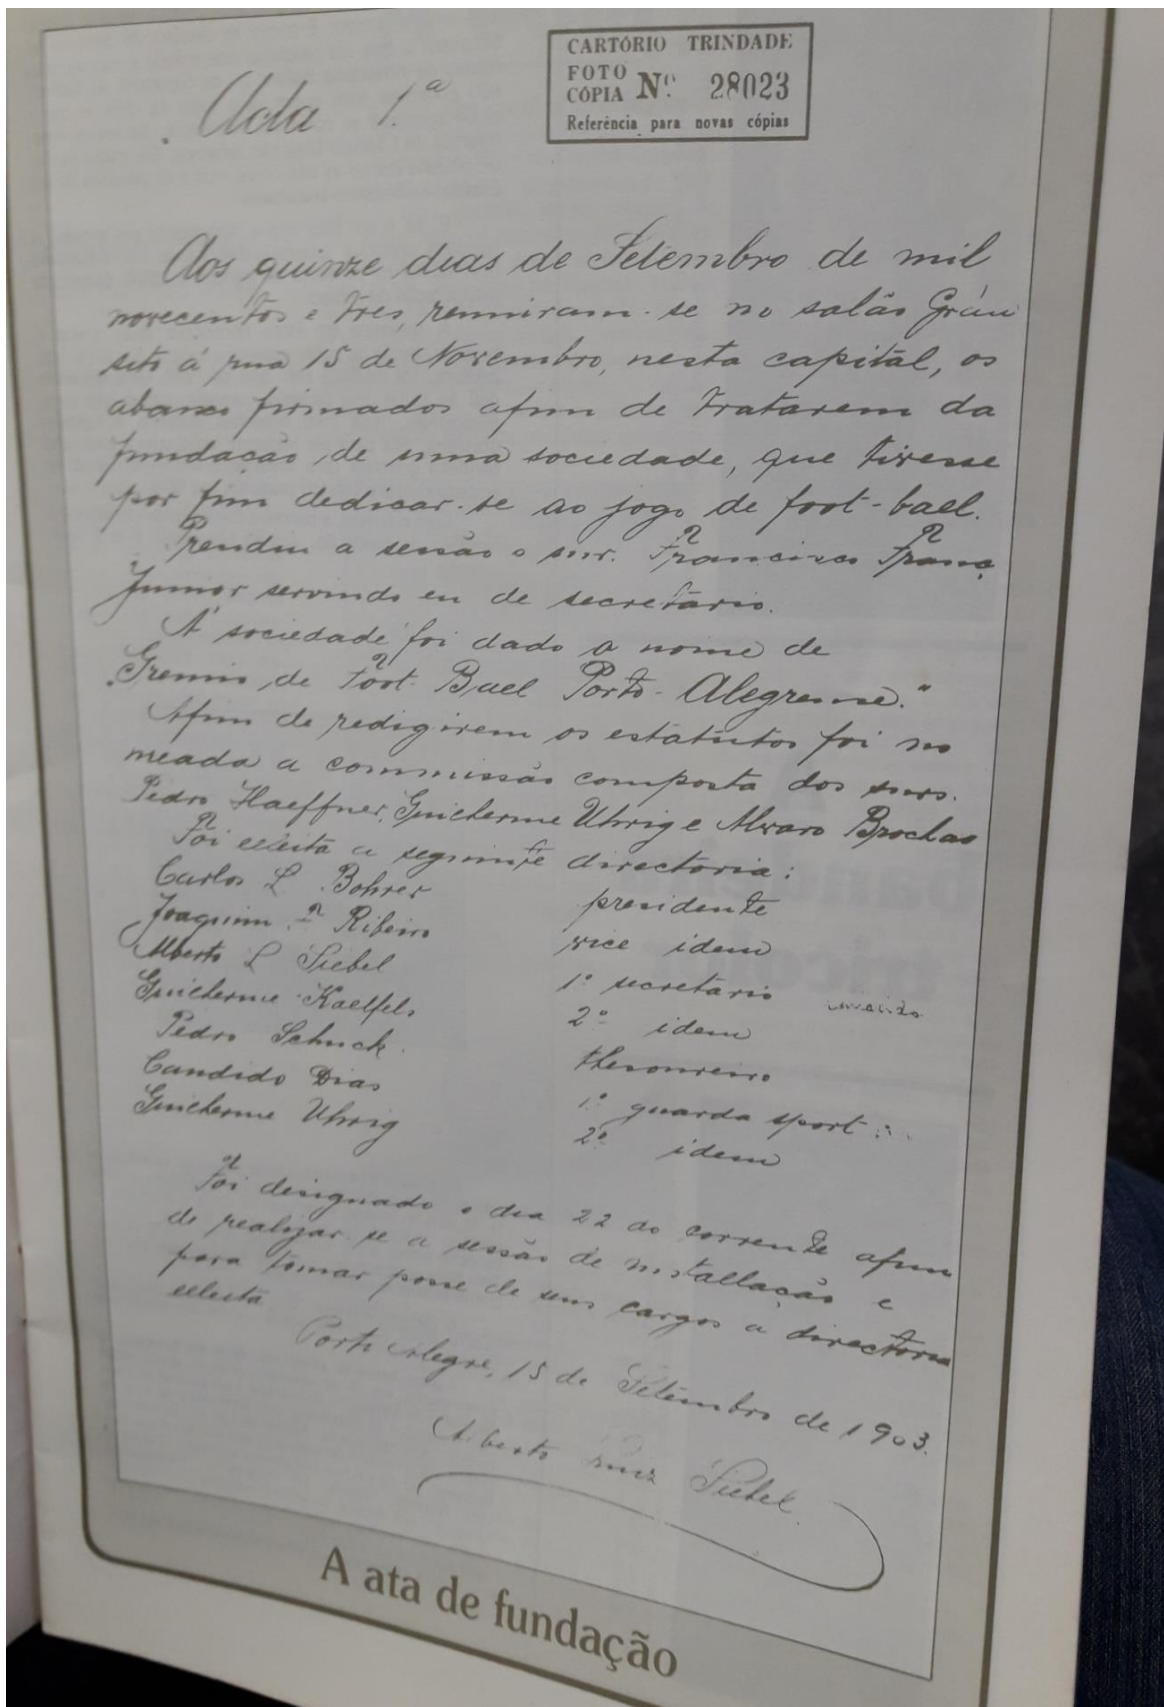 Acta 1.ª
CARTÓRIO TRINDADE
FOTO
CÓPIA Nº 28023
Referência para novas cópias
Aos quinze dias de Setembro de mil
novecentos e tres, reuniram-se no salão Gráu
sito á rua 15 de Novembro, nesta capital, os
abaixo firmados afim de tratarem da
fundação de uma sociedade, que tivesse
por fim dedicar-se ao jogo de foot-ball.
a sessão o snr. Francisco
Junior servindo eu de secretario.
A' sociedade foi dado o nome de
"Gremio de Foot-Ball Porto-Alegrense."
Afim de redigirem os estatutos foi no
meada a commissão composta dos snrs.
Pedro Haeffner, Guilherme Uhrig e Alvaro Brochado
Foi eleita a seguinte directoria:
Carlos L. Bohrer presidente
Joaquim F. Ribeiro vice idem
Alberto L. Siebel 1º secretario
Guilherme Kaelfels 2º idem
Pedro Schuck thesoureiro
Candido Dias 1º guarda sport
Guilherme Uhrig 2º idem
Foi designado o dia 22 do corrente afim
de realizar-se a sessão de installação e
para tomar posse de seus cargos a directoria
eleita
Porto Alegre, 15 de Setembro de 1903.
Alberto Luiz Siebel
A ata de fundação